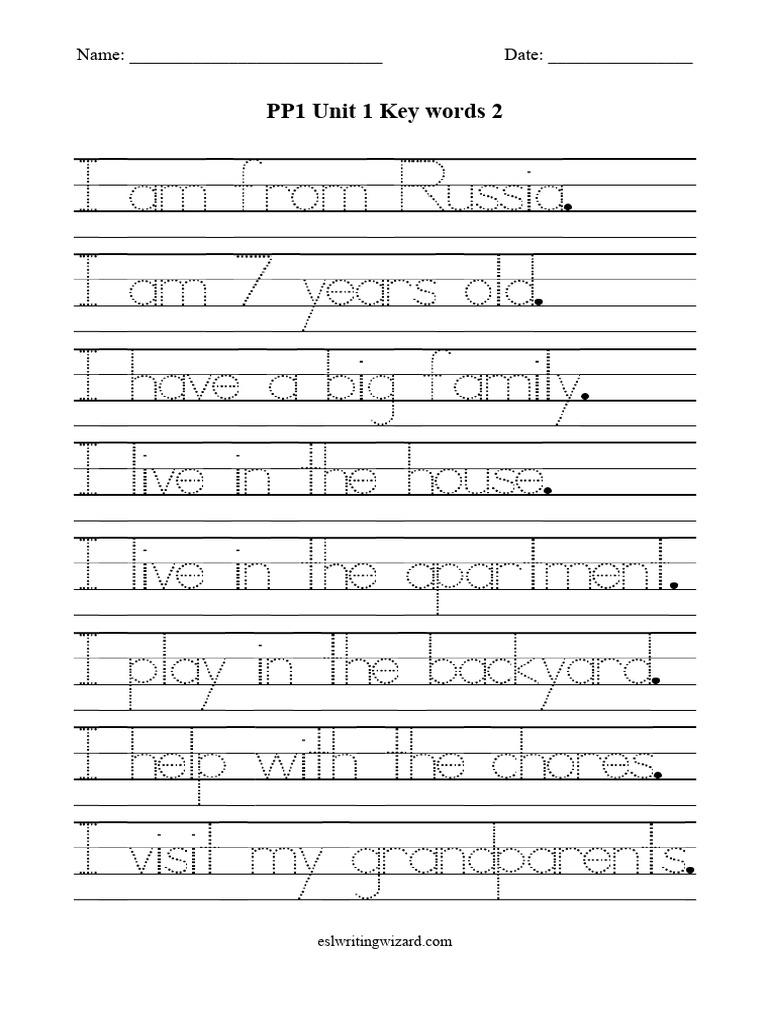 Name: ____________________________ Date: ________________
PP1 Unit 1 Key words 2
I am from Russia.
I am 7 years old.
I have a big family.
I live in the house.
I live in the apartment.
I play in the backyard.
I help with the chores.
I visit my grandparents.
eslwritingwizard.com